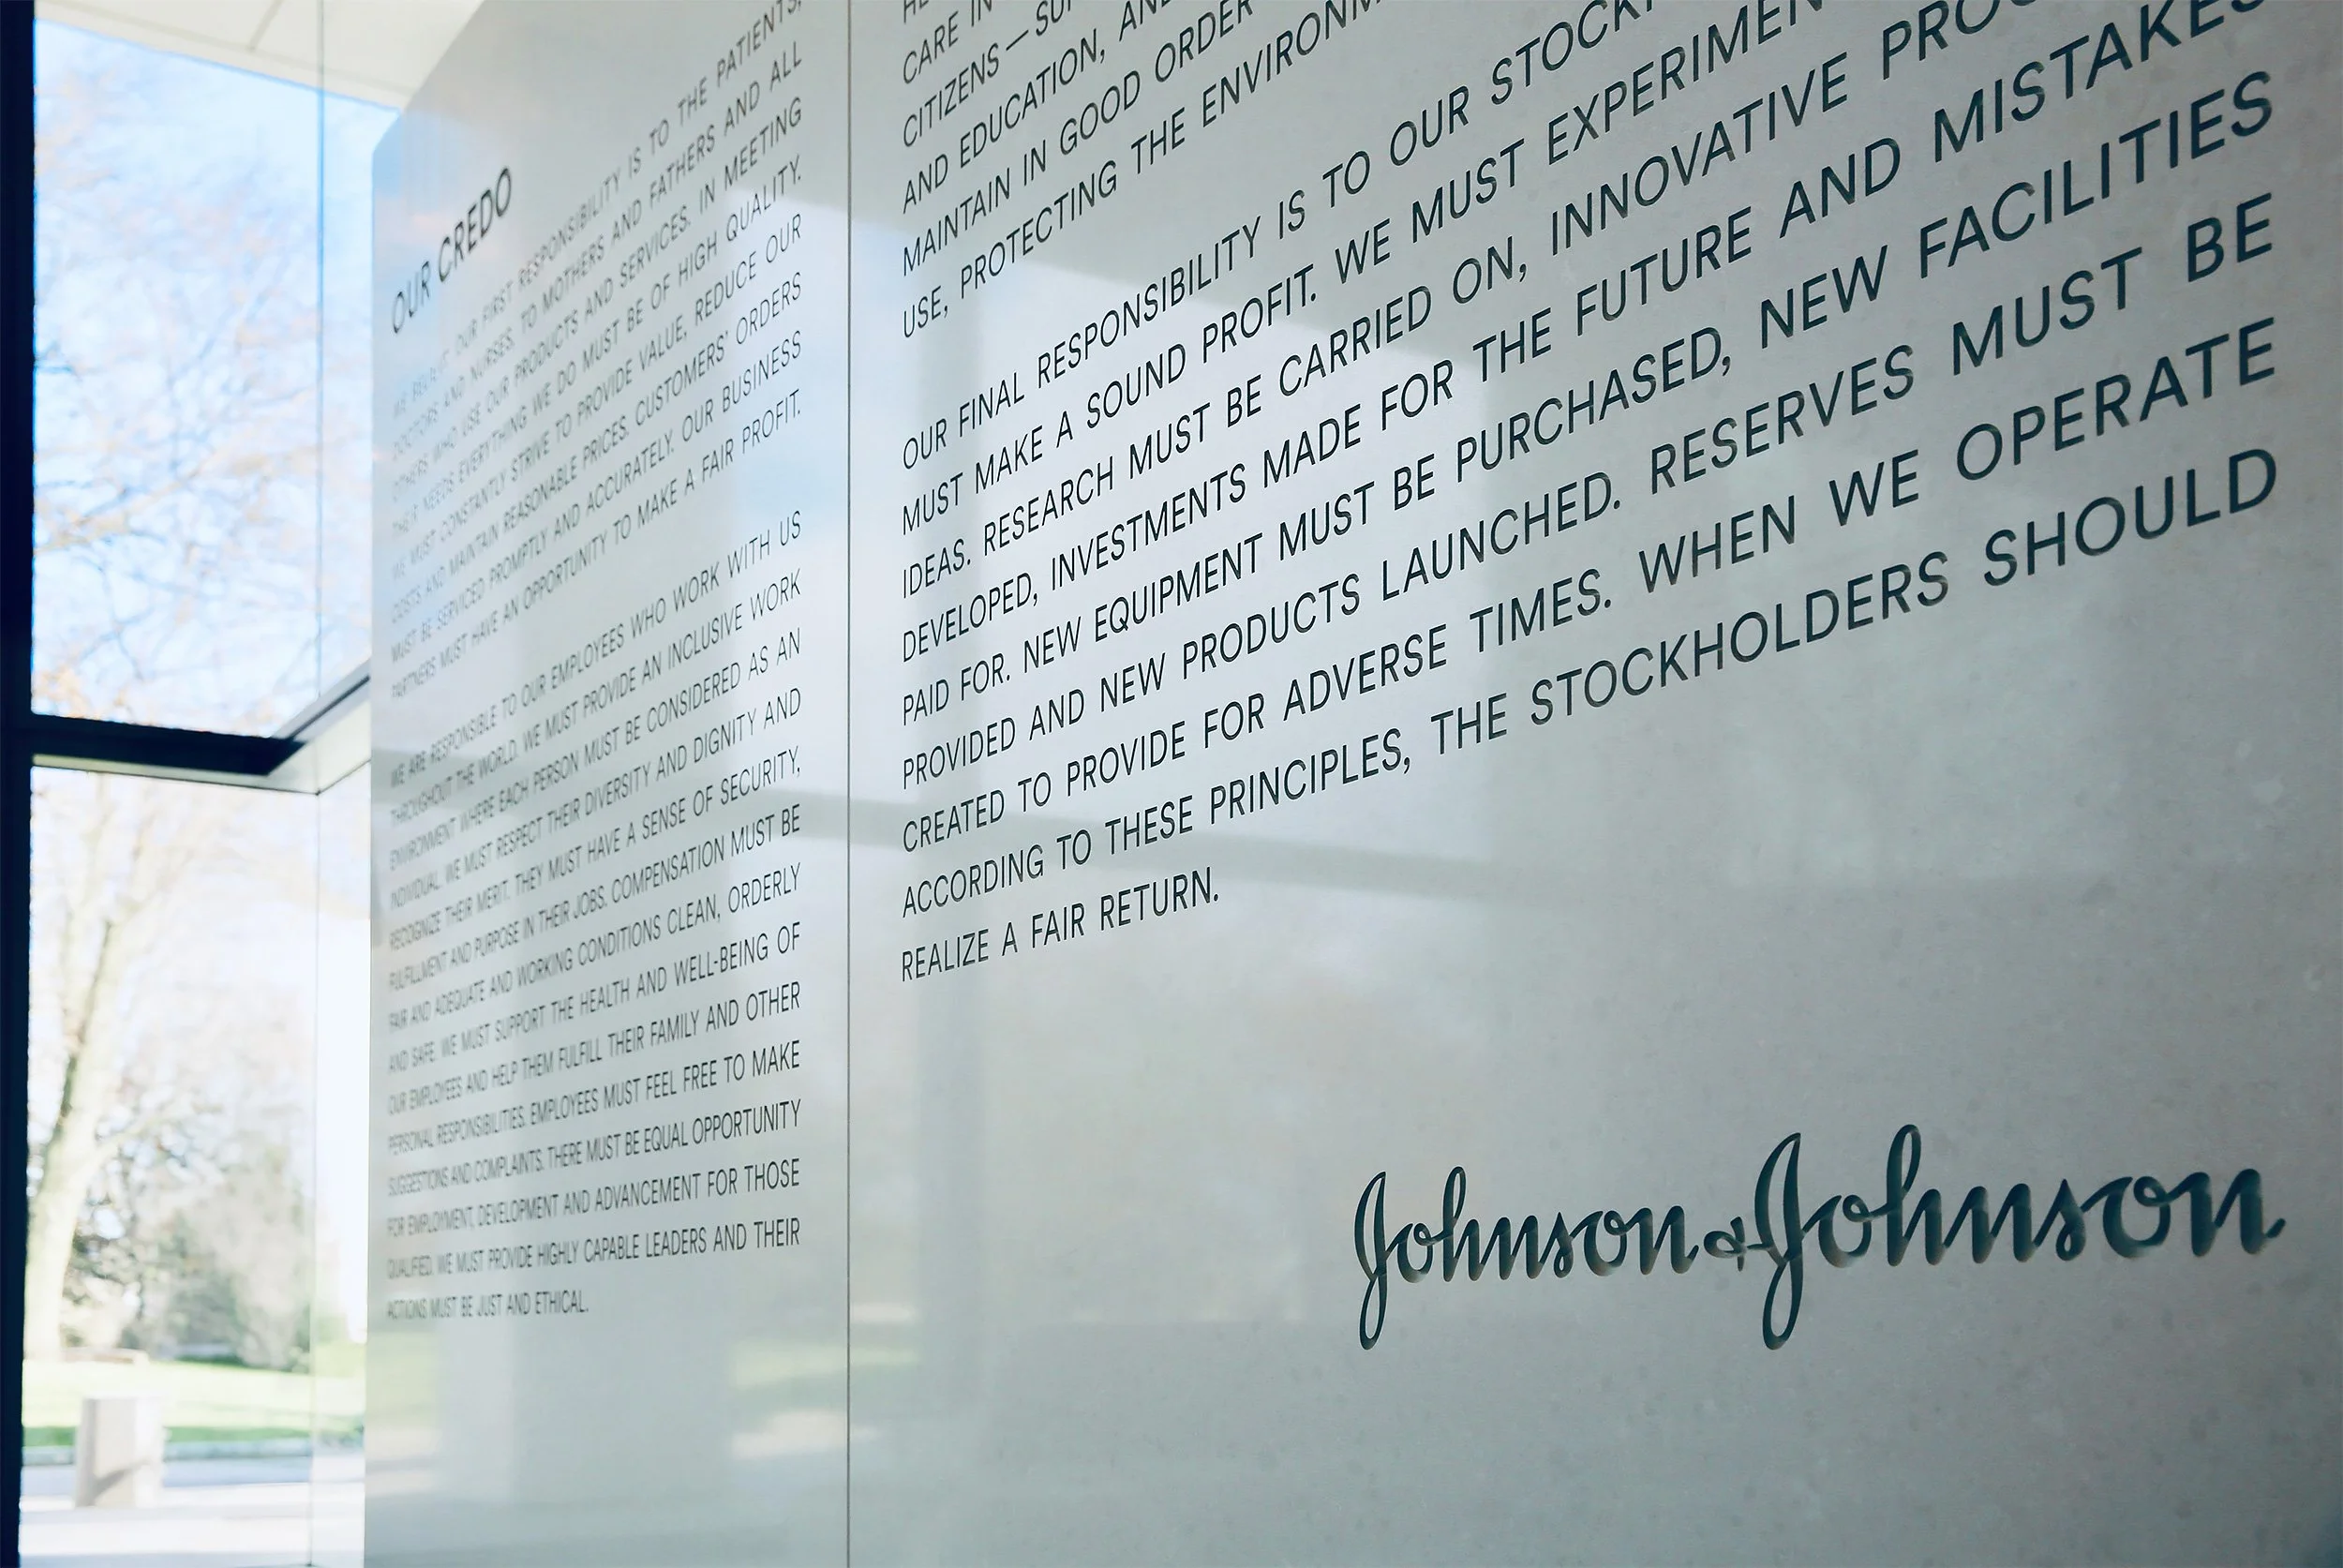 OUR CREDO
WE BELIEVE OUR FIRST RESPONSIBILITY IS TO THE PATIENTS,
DOCTORS AND NURSES, TO MOTHERS AND FATHERS AND ALL
OTHERS WHO USE OUR PRODUCTS AND SERVICES. IN MEETING
THEIR NEEDS EVERYTHING WE DO MUST BE OF HIGH QUALITY.
WE MUST CONSTANTLY STRIVE TO PROVIDE VALUE, REDUCE OUR
COSTS AND MAINTAIN REASONABLE PRICES. CUSTOMERS' ORDERS
MUST BE SERVICED PROMPTLY AND ACCURATELY. OUR BUSINESS
PARTNERS MUST HAVE AN OPPORTUNITY TO MAKE A FAIR PROFIT.
WE ARE RESPONSIBLE TO OUR EMPLOYEES WHO WORK WITH US
THROUGHOUT THE WORLD. WE MUST PROVIDE AN INCLUSIVE WORK
ENVIRONMENT WHERE EACH PERSON MUST BE CONSIDERED AS AN
INDIVIDUAL. WE MUST RESPECT THEIR DIVERSITY AND DIGNITY AND
RECOGNIZE THEIR MERIT. THEY MUST HAVE A SENSE OF SECURITY,
FULFILLMENT AND PURPOSE IN THEIR JOBS. COMPENSATION MUST BE
FAIR AND ADEQUATE AND WORKING CONDITIONS CLEAN, ORDERLY
AND SAFE. WE MUST SUPPORT THE HEALTH AND WELL-BEING OF
OUR EMPLOYEES AND HELP THEM FULFILL THEIR FAMILY AND OTHER
PERSONAL RESPONSIBILITIES. EMPLOYEES MUST FEEL FREE TO MAKE
SUGGESTIONS AND COMPLAINTS. THERE MUST BE EQUAL OPPORTUNITY
FOR EMPLOYMENT, DEVELOPMENT AND ADVANCEMENT FOR THOSE
QUALIFIED. WE MUST PROVIDE HIGHLY CAPABLE LEADERS AND THEIR
ACTIONS MUST BE JUST AND ETHICAL.
CARE IN
CITIZENS—SU
AND EDUCATION, AN
MAINTAIN IN GOOD ORDER
USE, PROTECTING THE ENVIRONM
OUR FINAL RESPONSIBILITY IS TO OUR STOCK
MUST MAKE A SOUND PROFIT. WE MUST EXPERIMEN
IDEAS. RESEARCH MUST BE CARRIED ON, INNOVATIVE PROG
DEVELOPED, INVESTMENTS MADE FOR THE FUTURE AND MISTAKES
PAID FOR. NEW EQUIPMENT MUST BE PURCHASED, NEW FACILITIES
PROVIDED AND NEW PRODUCTS LAUNCHED. RESERVES MUST BE
CREATED TO PROVIDE FOR ADVERSE TIMES. WHEN WE OPERATE
ACCORDING TO THESE PRINCIPLES, THE STOCKHOLDERS SHOULD
REALIZE A FAIR RETURN.
Johnson & Johnson